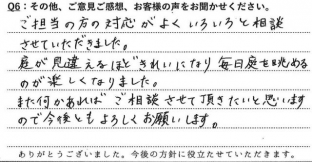 Q6：その他、ご意見ご感想、お客様の声をお聞かせください。
ご担当の方の対応がよくいろいろと相談
させていただきました。
庭が見違えるほどきれいになり毎日庭を眺める
のが楽しくなりました。
また何かあればご相談させて頂きたいと思います
ので今後ともよろしくお願いします。
ありがとうございました。今後の方針に役立たせていただきます。